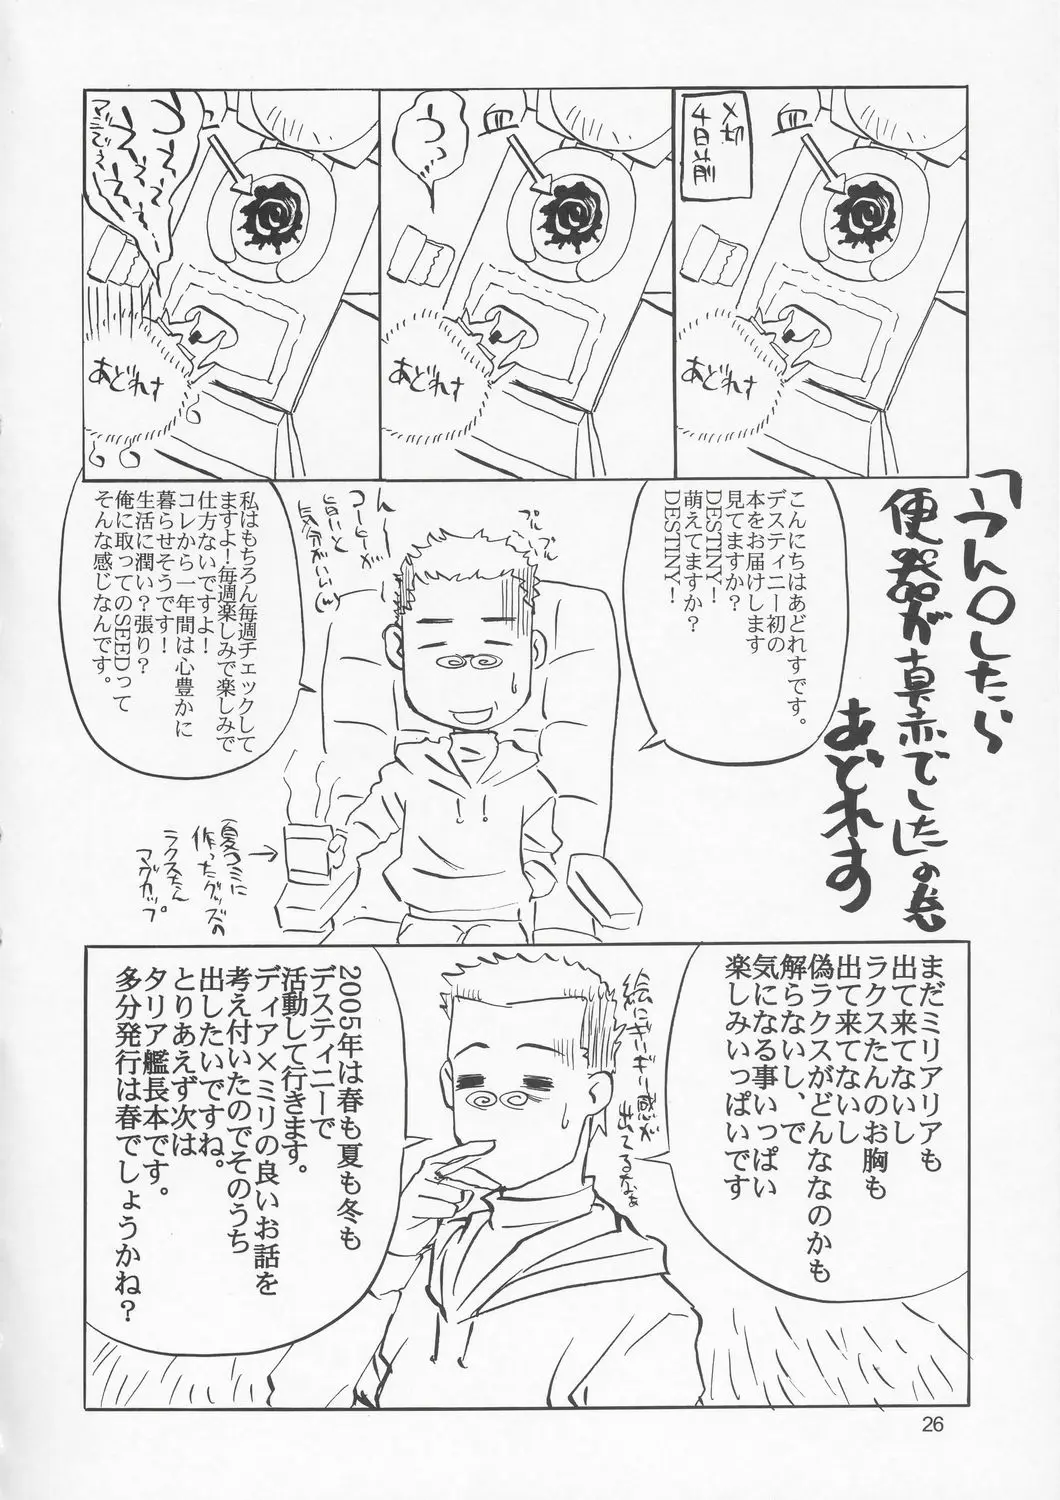 「うん○したら
便器が真赤でした」の巻
あどれす
〆切
4日前
皿
あどれす
皿
うっ…
あどれす
皿
あどれす
こんにちはあどれすです。
デスティニー初の
本をお届けします
見てますか?
DESTINY!
萌えてますか?
DESTINY!
プルプル
プルプル
んー
コーヒーが
旨いと
気分がいい
私はもちろん毎週チェックして
ますよ!毎週楽しみで楽しみで
仕方ないですよ!
コレから一年間は心豊かに
暮らせそうです!
生活に潤い?張り?
俺に取ってのSEEDって
そんな感じなんです。
夏コミに
作ったグッズの
ラクスたん
マグカップ。
まだミリアリアも
出て来てないし
ラクスたんのお胸も
出て来てないし
偽ラクスがどんななのかも
解らないし、で
気になる事いっぱい
楽しみいっぱいです
絵にギーギー感が
出てるなぁ
2005年は春も夏も冬も
デスティニーで
活動して行きます。
ディア×ミリの良いお話を
考え付いたのでそのうち
出したいですね。
とりあえず次は
タリア艦長本です。
多分発行は春でしょうかね?
26